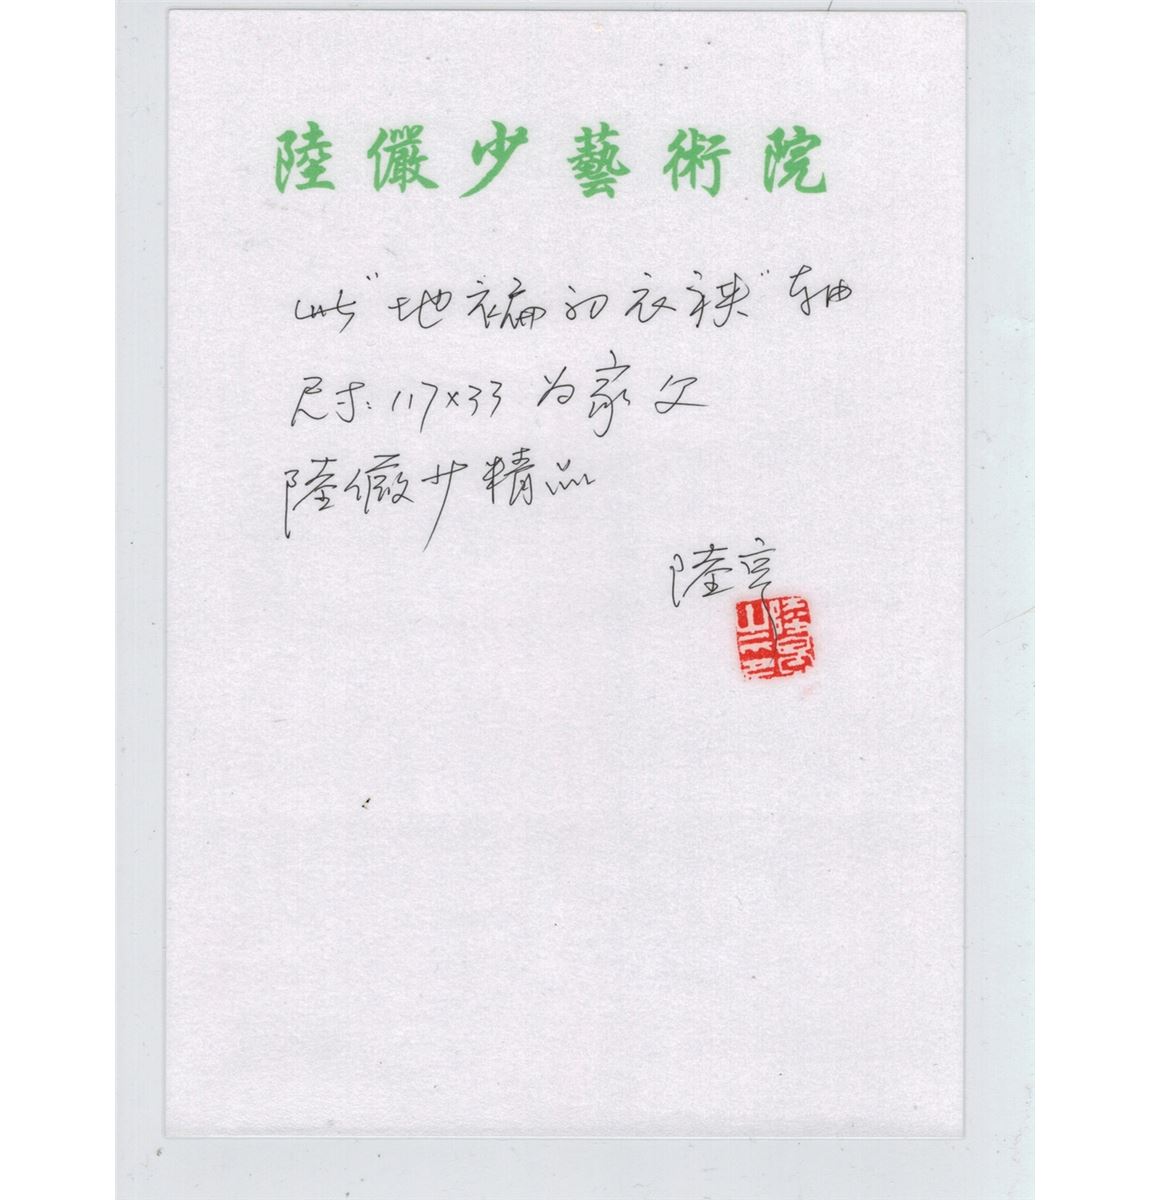 陸儼少藝術院
此"地褊初衣裌"轴
尺寸: 117×33 为家父
陸儼少精品
陸亨